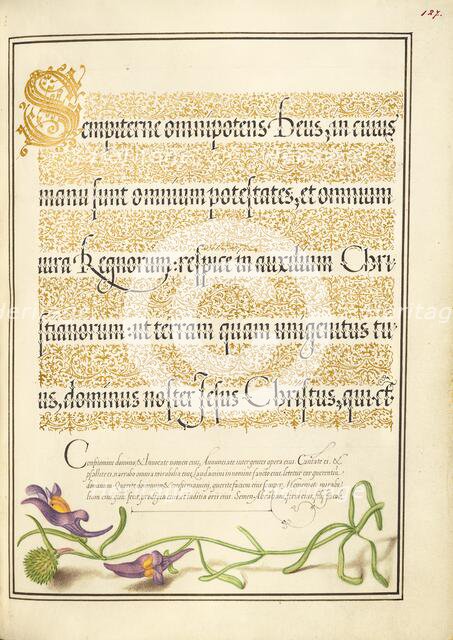 127.
Sempiterne omnipotens Deus, in cuius
manu sunt omnium potestates, et omnium
iura Regnorum: respice in auxilium Chri
stianorum: ut terram quam unigenitus tu
us, dominus noster Jesus Christus, qui est
Confitemini domino, & Invocate nomen eius, Annunciate inter gentes opera eius Cantate ei, &
psallite ei, narrate omnia mirabilia eius, laudamini in nomine sancto eius, letetur cor querentiu
dominum Querite dominum, & confirmamini, querite faciem eius semper. Mementote mirabi
lium eius, que fecit, prodigia eius, et iuditia oris eius. Semen Abraham, servi eius, filij Jacob,